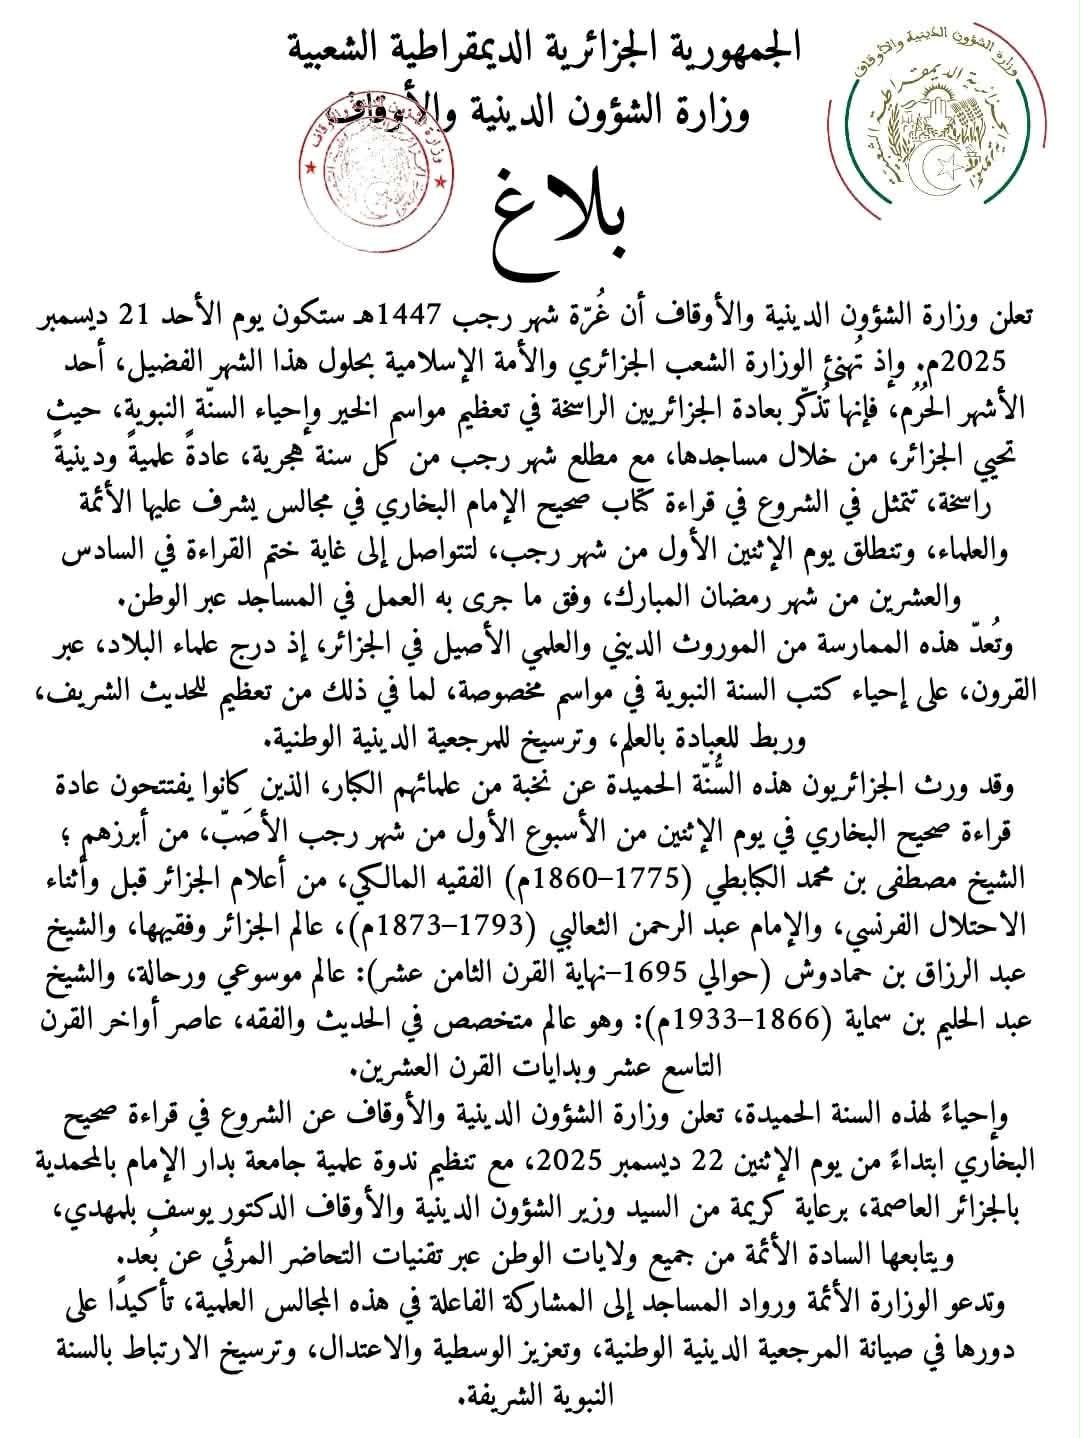 الجمهورية الجزائرية الديمقراطية الشعبية
وزارة الشؤون الدينية والأوقاف
وزارة الشؤون الدينية والأوقاف
الجزائرية الديمقراطية
بلاغ
تعلن وزارة الشؤون الدينية والأوقاف أن غُرّة شهر رجب 1447هـ ستكون يوم الأحد 21 ديسمبر
2025م. وإذ تُهنئ الوزارة الشعب الجزائري والأمة الإسلامية بحلول هذا الشهر الفضيل، أحد
الأشهر الحُرُم، فإنها تُذكّر بعادة الجزائريين الراسخة في تعظيم مواسم الخير وإحياء السنّة النبوية، حيث
تحيي الجزائر، من خلال مساجدها، مع مطلع شهر رجب من كل سنة هجرية، عادةً علميةً ودينيةً
راسخة، تتمثل في الشروع في قراءة كتاب صحيح الإمام البخاري في مجالس يشرف عليها الأئمة
والعلماء، وتنطلق يوم الإثنين الأول من شهر رجب، لتتواصل إلى غاية ختم القراءة في السادس
والعشرين من شهر رمضان المبارك، وفق ما جرى به العمل في المساجد عبر الوطن.
وتُعدّ هذه الممارسة من الموروث الديني والعلمي الأصيل في الجزائر، إذ درج علماء البلاد، عبر
القرون، على إحياء كتب السنة النبوية في مواسم مخصوصة، لما في ذلك من تعظيم للحديث الشريف،
وربط للعبادة بالعلم، وترسيخ للمرجعية الدينية الوطنية.
وقد ورث الجزائريون هذه السُّنّة الحميدة عن نخبة من علمائهم الكبار، الذين كانوا يفتتحون عادة
قراءة صحيح البخاري في يوم الإثنين من الأسبوع الأول من شهر رجب الأصَبّ، من أبرزهم ؛
الشيخ مصطفى بن محمد الكبابطي (1775–1860م) الفقيه المالكي، من أعلام الجزائر قبل وأثناء
الاحتلال الفرنسي، والإمام عبد الرحمن الثعالبي (1793–1873م)، عالم الجزائر وفقيهها، والشيخ
عبد الرزاق بن حمادوش (حوالي 1695–نهاية القرن الثامن عشر): عالم موسوعي ورحالة، والشيخ
عبد الحليم بن سماية (1866–1933م): وهو عالم متخصص في الحديث والفقه، عاصر أواخر القرن
التاسع عشر وبدايات القرن العشرين.
وإحياءً لهذه السنة الحميدة، تعلن وزارة الشؤون الدينية والأوقاف عن الشروع في قراءة صحيح
البخاري ابتداءً من يوم الإثنين 22 ديسمبر 2025، مع تنظيم ندوة علمية جامعة بدار الإمام بالمحمدية
بالجزائر العاصمة، برعاية كريمة من السيد وزير الشؤون الدينية والأوقاف الدكتور يوسف بلمهدي،
ويتابعها السادة الأئمة من جميع ولايات الوطن عبر تقنيات التحاضر المرئي عن بُعد.
وتدعو الوزارة الأئمة ورواد المساجد إلى المشاركة الفاعلة في هذه المجالس العلمية، تأكيدًا على
دورها في صيانة المرجعية الدينية الوطنية، وتعزيز الوسطية والاعتدال، وترسيخ الارتباط بالسنة
النبوية الشريفة.